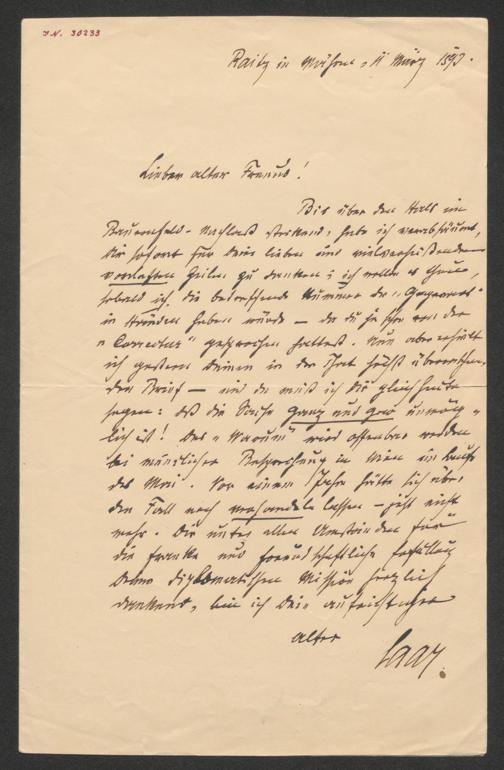 I.N. 30233
Raitz in Mähren, 11 März 1893.
Lieber alter Freund!
Bis über den Hals im
Bauernfeld-Nachlaß steckend, habe ich verabsäumt,
Dir sofort für Deine lieben und
vorletzten Zeilen zu danken; ich wollte es thun,
sobald ich die betreffende Nummer der „Gegenwart"
in Händen haben würde — da Du ja schon von der
„Correctur" gesprochen hattest. Nun aber erhielt
ich gestern Deinen in der That höchst überraschen-
den Brief — und da muß ich Dir gleich heute
sagen: daß die Sache ganz und gar unmög-
lich ist! Das „Warum" wird offenbar werden
bei mündlicher Besprechung in Wien im Laufe
des Mai. Vor einem Jahre hätte sich über
den Fall noch verhandeln lassen — jetzt nicht
mehr. Dir unter allen Umständen für
die franke und freundschaftliche Erfüllung
Deiner diplomatischen Mission herzlich
dankend, bin ich Dein aufrichtiger
alter
Saar.